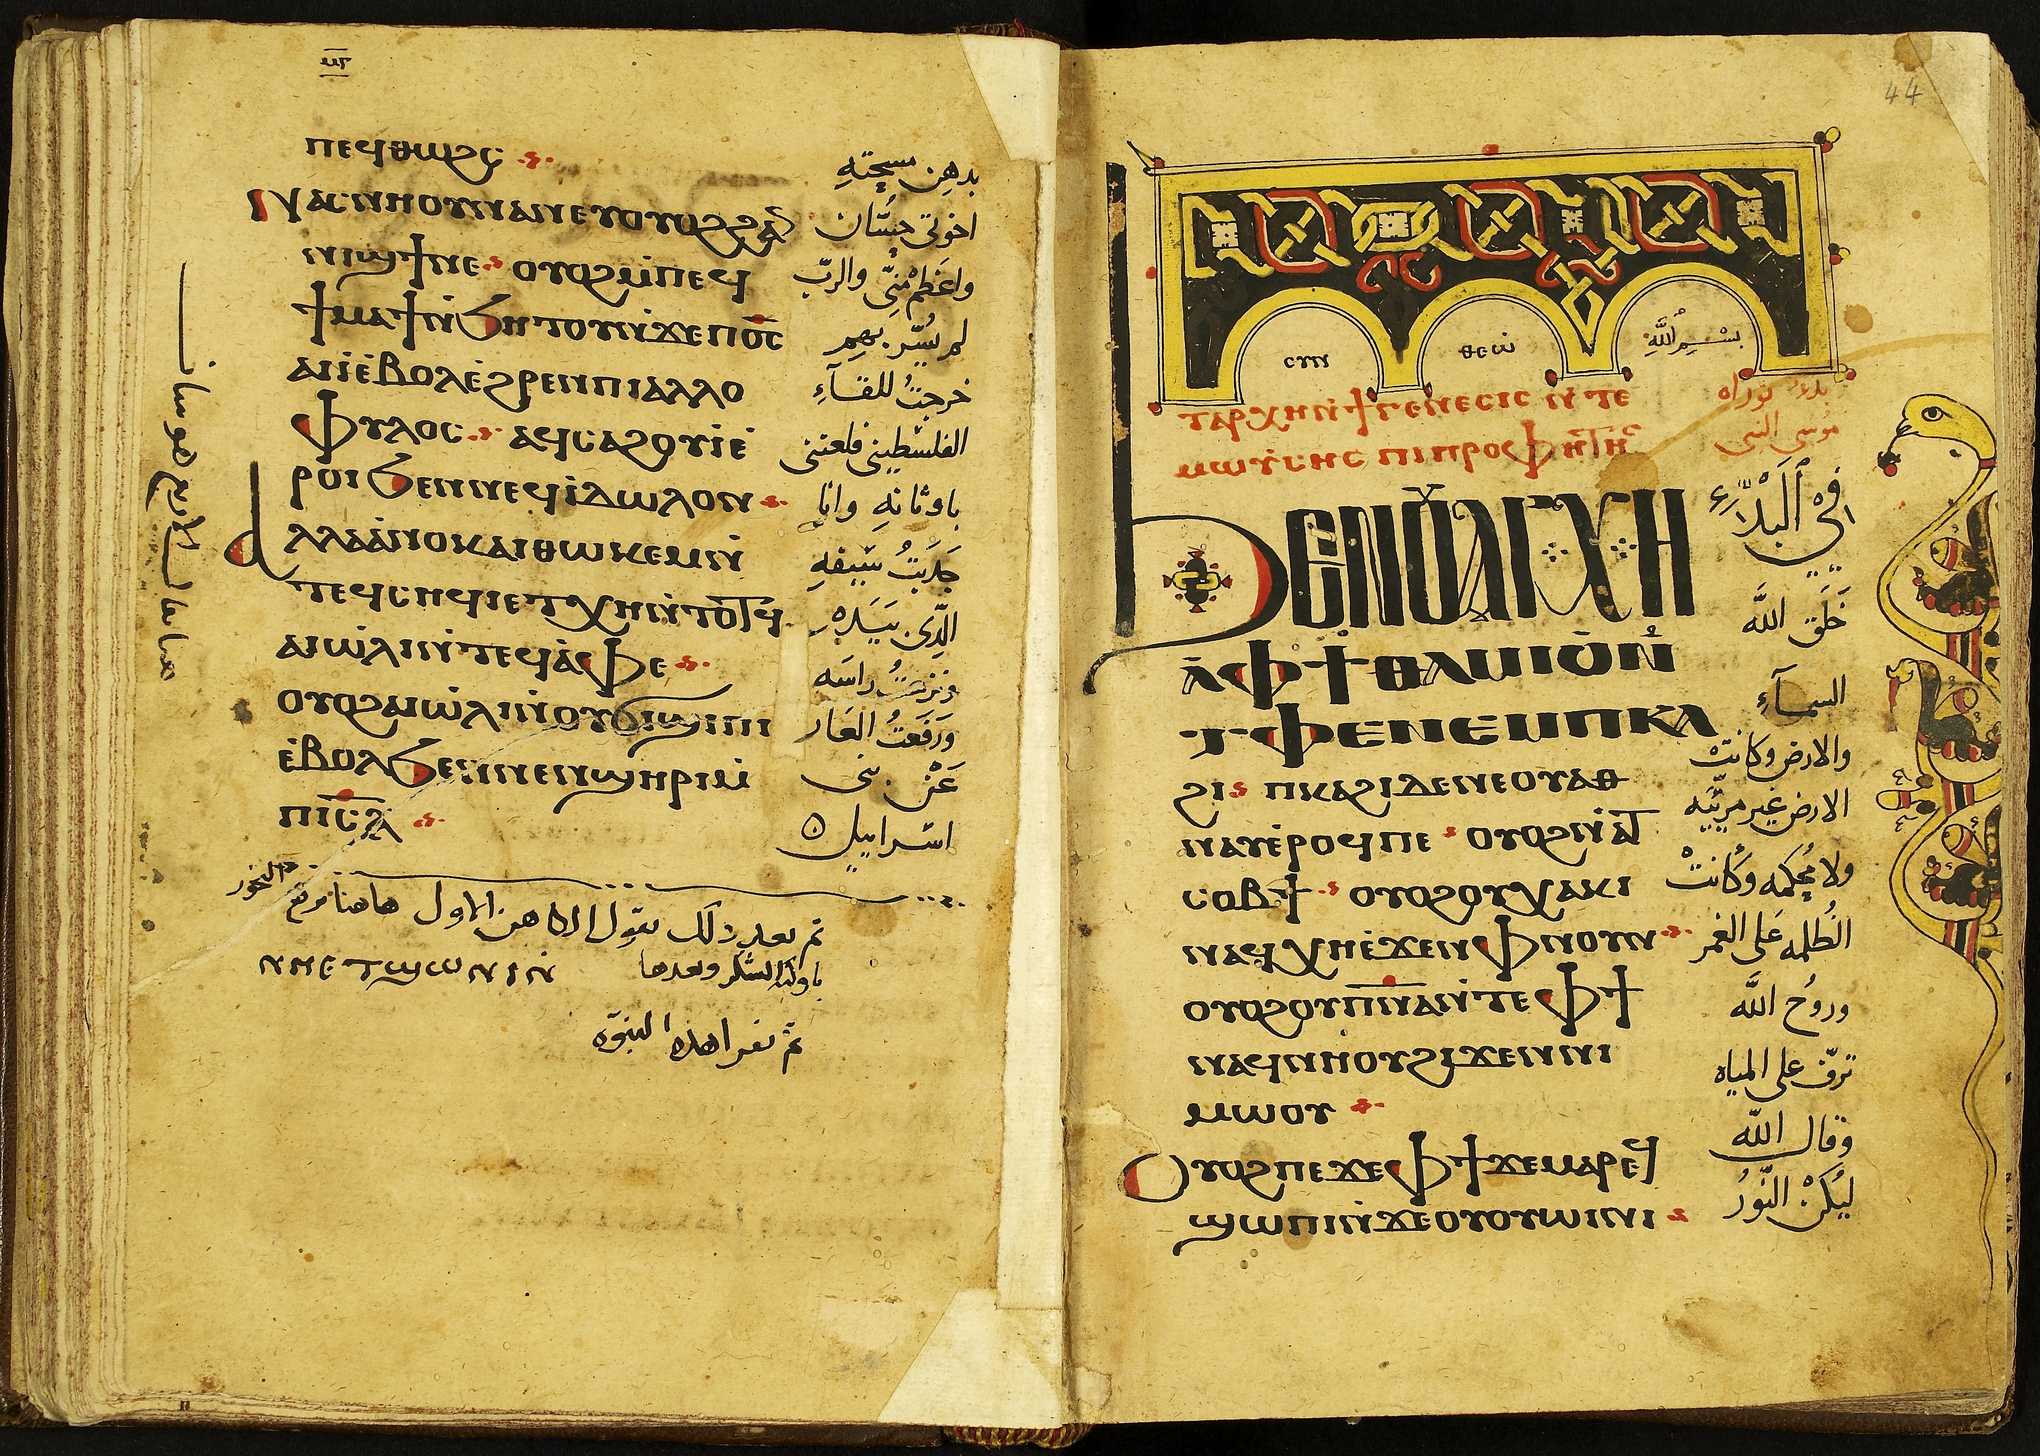 ⲡⲉϥⲑⲱϩⲥ
ⲛⲁⲥⲛⲏⲟⲩ ⲛⲁⲛⲉⲩ ⲟⲩⲟϩ ϩⲁⲛ
ⲛⲓϣϯ ⲛⲉ ⲟⲩⲟϩ ⲙ̀ⲡⲉϥ
ϯⲙⲁϯ ⲛ̀ϧⲏⲧⲟⲩ ⲛ̀ϫⲉ ⲡϭⲥ
ⲁⲓⲓ̀ ⲉ̀ⲃⲟⲗ ⲉ̀ϩⲣⲉⲛ ⲡⲓⲁⲗⲗⲟ
ⲫⲩⲗⲟⲥ ⲁϥⲥⲁϩⲟⲩⲓ̀ ⲉ̀
ⲣⲟⲓ ϧⲉⲛ ⲛⲉϥⲓ̀ⲇⲱⲗⲟⲛ
ⲁⲗⲗⲁ ⲁ̀ⲛⲟⲕ ⲁⲓⲑⲱⲕⲉⲙ ⲛ̀
ⲧⲉϥⲥⲏϥⲓ ⲉⲧⲭⲏ ⲛ̀ⲧⲟⲧϥ
ⲁⲓⲱ̀ⲗⲓ ⲛ̀ⲧⲉϥⲁ̀ⲫⲉ
ⲟⲩⲟϩ ⲁⲓⲱ̀ⲗⲓ ⲛ̀ⲟⲩϣⲓⲡⲓ
ⲉ̀ⲃⲟⲗ ϧⲉⲛ ⲛⲉⲛϣⲏⲣⲓ ⲙ̀
ⲡⲓⲥⲗ
بدهن مسحته
اخوتي حسان
واعظم مني والرب
لم يسر بهم
خرجت للقآء
الفلسطيني فلعنني
باوثانه وانا
جذبت سيفه
الذي بيده
ونزعت راسه
ورفعت العار
عن بني
اسراييل
ثم بعد ذلك يقول الكاهن الاول هاهنا يرفع البخور
باوكية الشكر وبعدها ⲛⲏⲉⲧϣⲱⲛⲓ ⲛ̀
ثم تقرا هذه النبوه
44
ⲥⲩⲛ ⲑⲉⲱ̀ بسم الله
ⲧⲁⲣⲭⲏ ⲛ̀ϯⲅⲉⲛⲉⲥⲓⲥ ⲛ̀ⲧⲉ
ⲙⲱⲩ̀ⲥⲏⲥ ⲡⲓⲡⲣⲟⲫⲏⲧⲏⲥ
بدء توراه
موسى النبي
ϧⲉⲛ ⲟⲩⲁⲣⲭⲏ
ⲁ̀ ⲫϯ ⲑⲁⲙⲓⲟ̀ ⲛ̀
ⲧⲫⲉ ⲛⲉⲙ ⲡⲕⲁ
ϩⲓ ⲡⲕⲁϩⲓ ⲇⲉ ⲛⲉ ⲟⲩⲁⲑ
ⲛⲁⲩ ⲉ̀ⲣⲟϥ ⲡⲉ ⲟⲩⲟϩ ⲛ̀ⲁⲧ
ⲥⲟⲃϯ ⲟⲩⲟϩ ⲟⲩⲭⲁⲕⲓ
ⲛⲁϥⲭⲏ ⲉ̀ϫⲉⲛ ⲫⲛⲟⲩⲛ
ⲟⲩⲟϩ ⲟⲩⲡⲛⲁ ⲛ̀ⲧⲉ ⲫϯ
ⲛⲁϥⲛⲏⲟⲩ ϩⲓϫⲉⲛ ⲛⲓ
ⲙⲱⲟⲩ
ⲟⲩⲟϩ ⲡⲉϫⲉ ⲫϯ ϫⲉ ⲙⲁⲣⲉϥ
ϣⲱⲡⲓ ⲛ̀ϫⲉ ⲟⲩⲟⲩⲱⲓⲛⲓ
في البدء
خلق الله
السمآء
والارض وكانت
الارض غير مريية
ولا محكمه وكانت
الظلمه على الغمر
وروح الله
ترف على المياه
وقال الله
ليكن النور